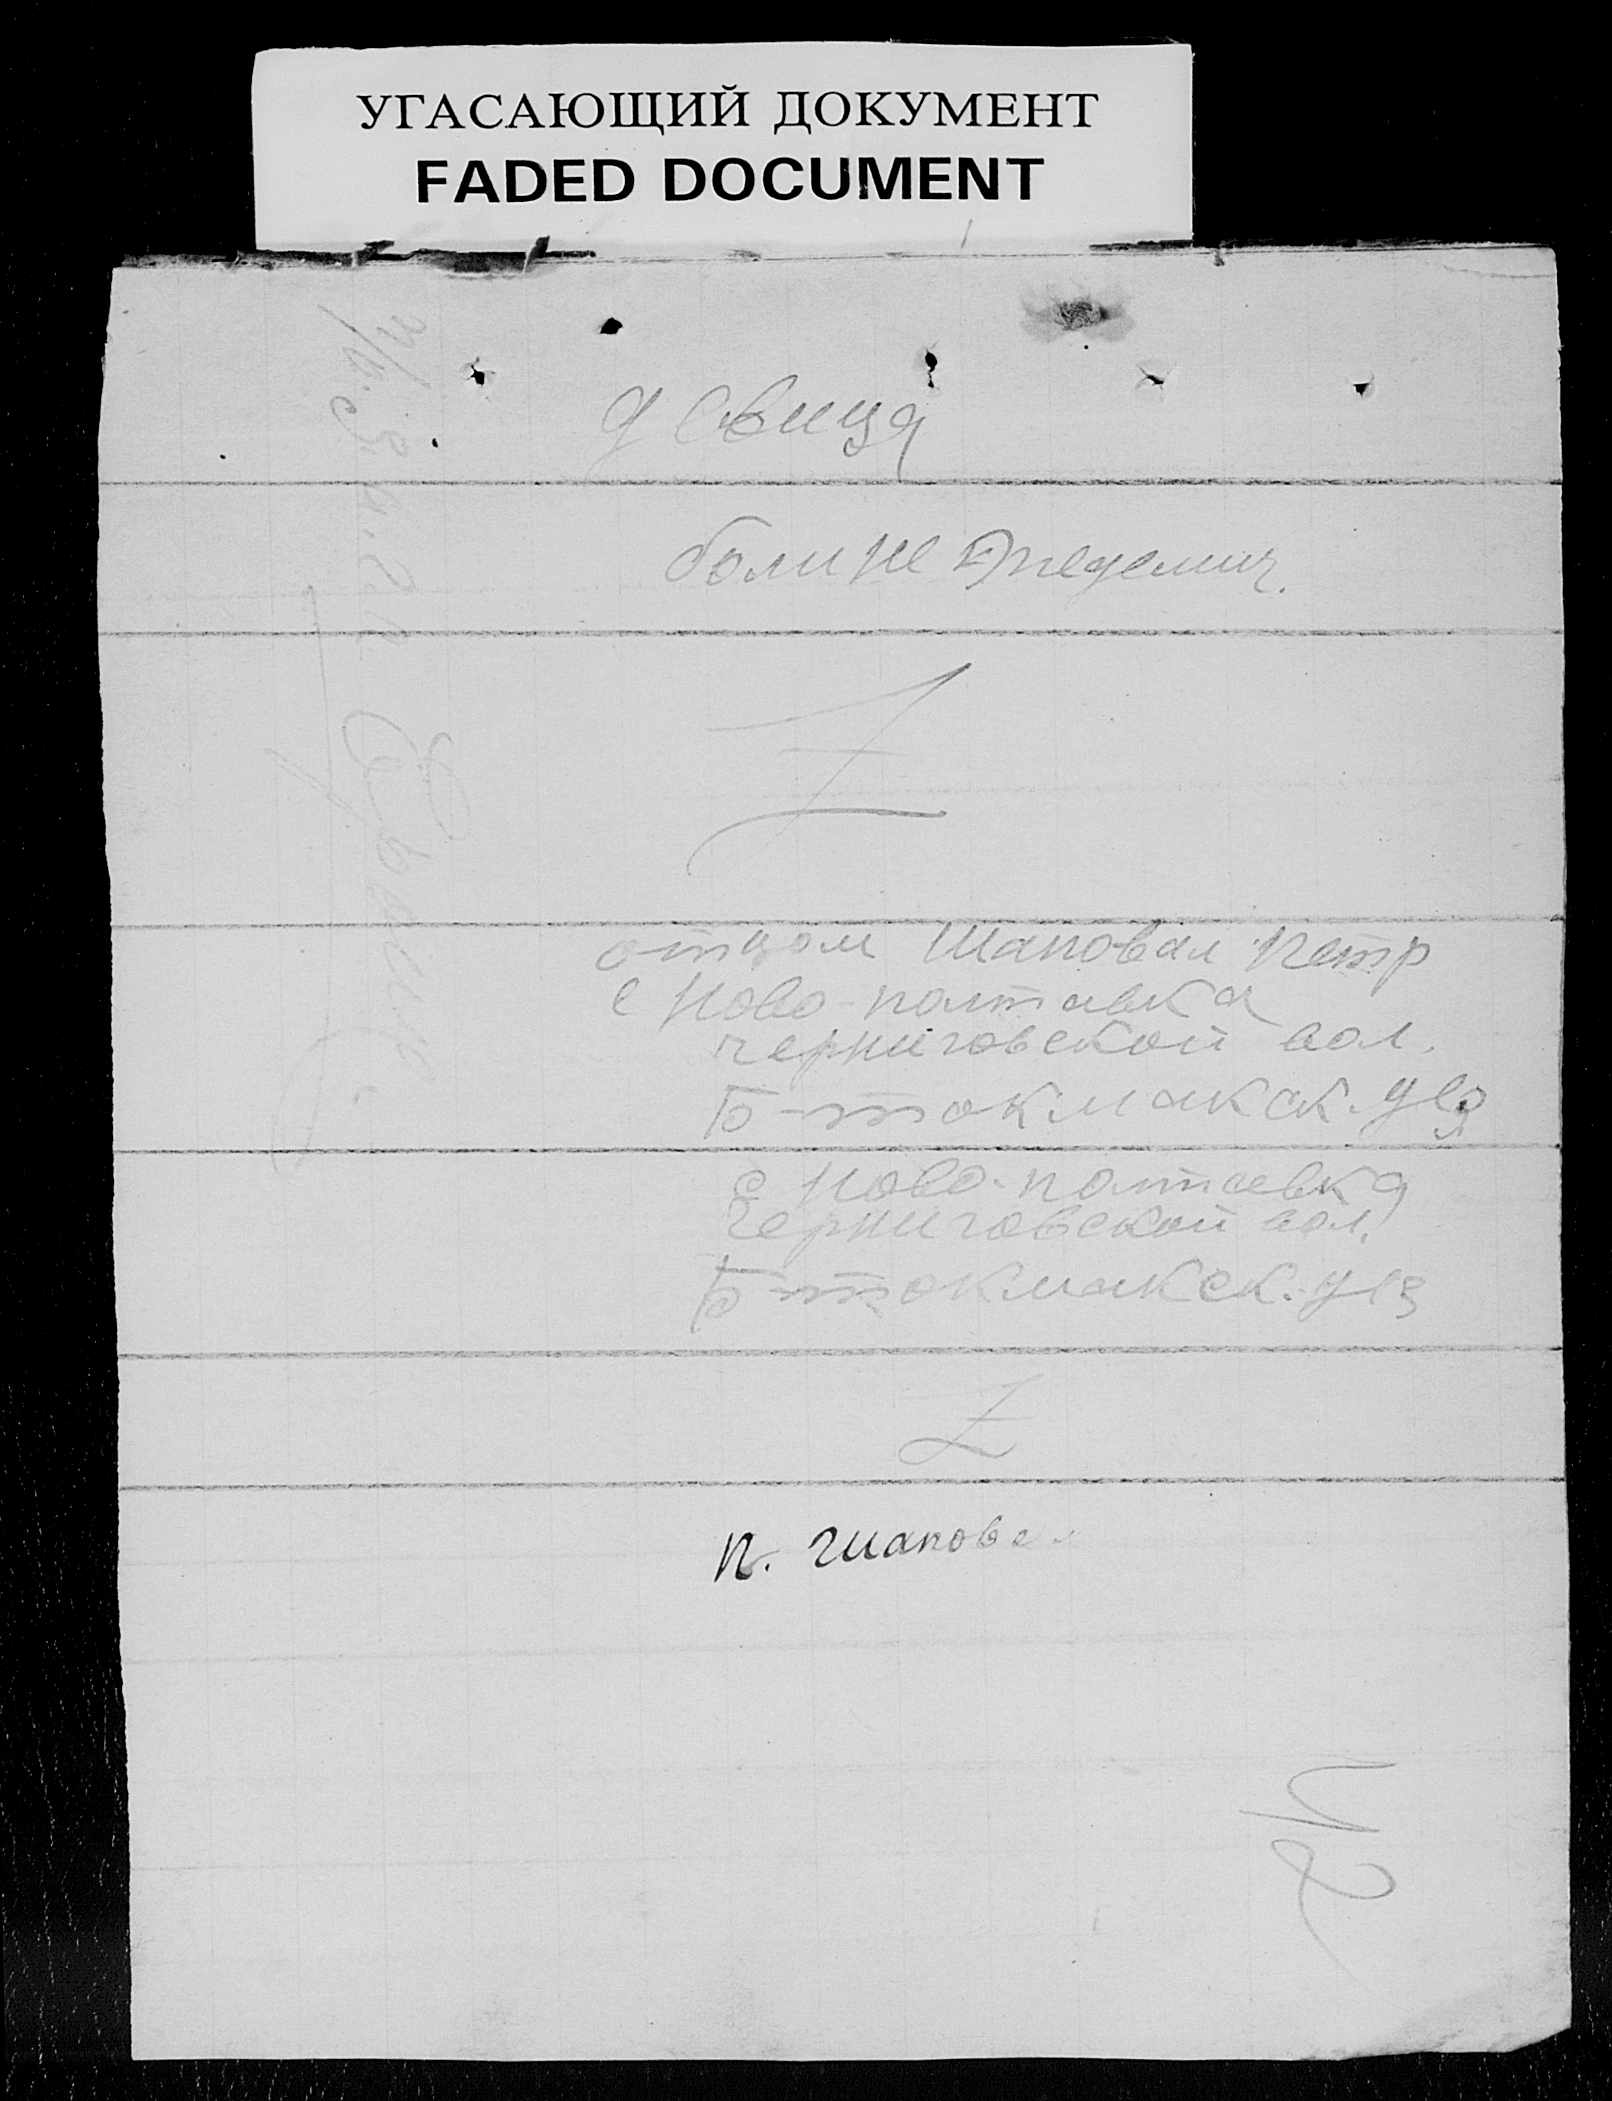 УГАСАЮЩИЙ ДОКУМЕНТ
FADED DOCUMENT
девица
боли не эпедемич.
Z
отцом Шаповал Петр
с Ново-полтавка
черниговской вол.
Б-токмакск. уез
с Ново-полтавка
Черниговской вол.
Б-токмакск. уез
Z
П. Шаповал
42